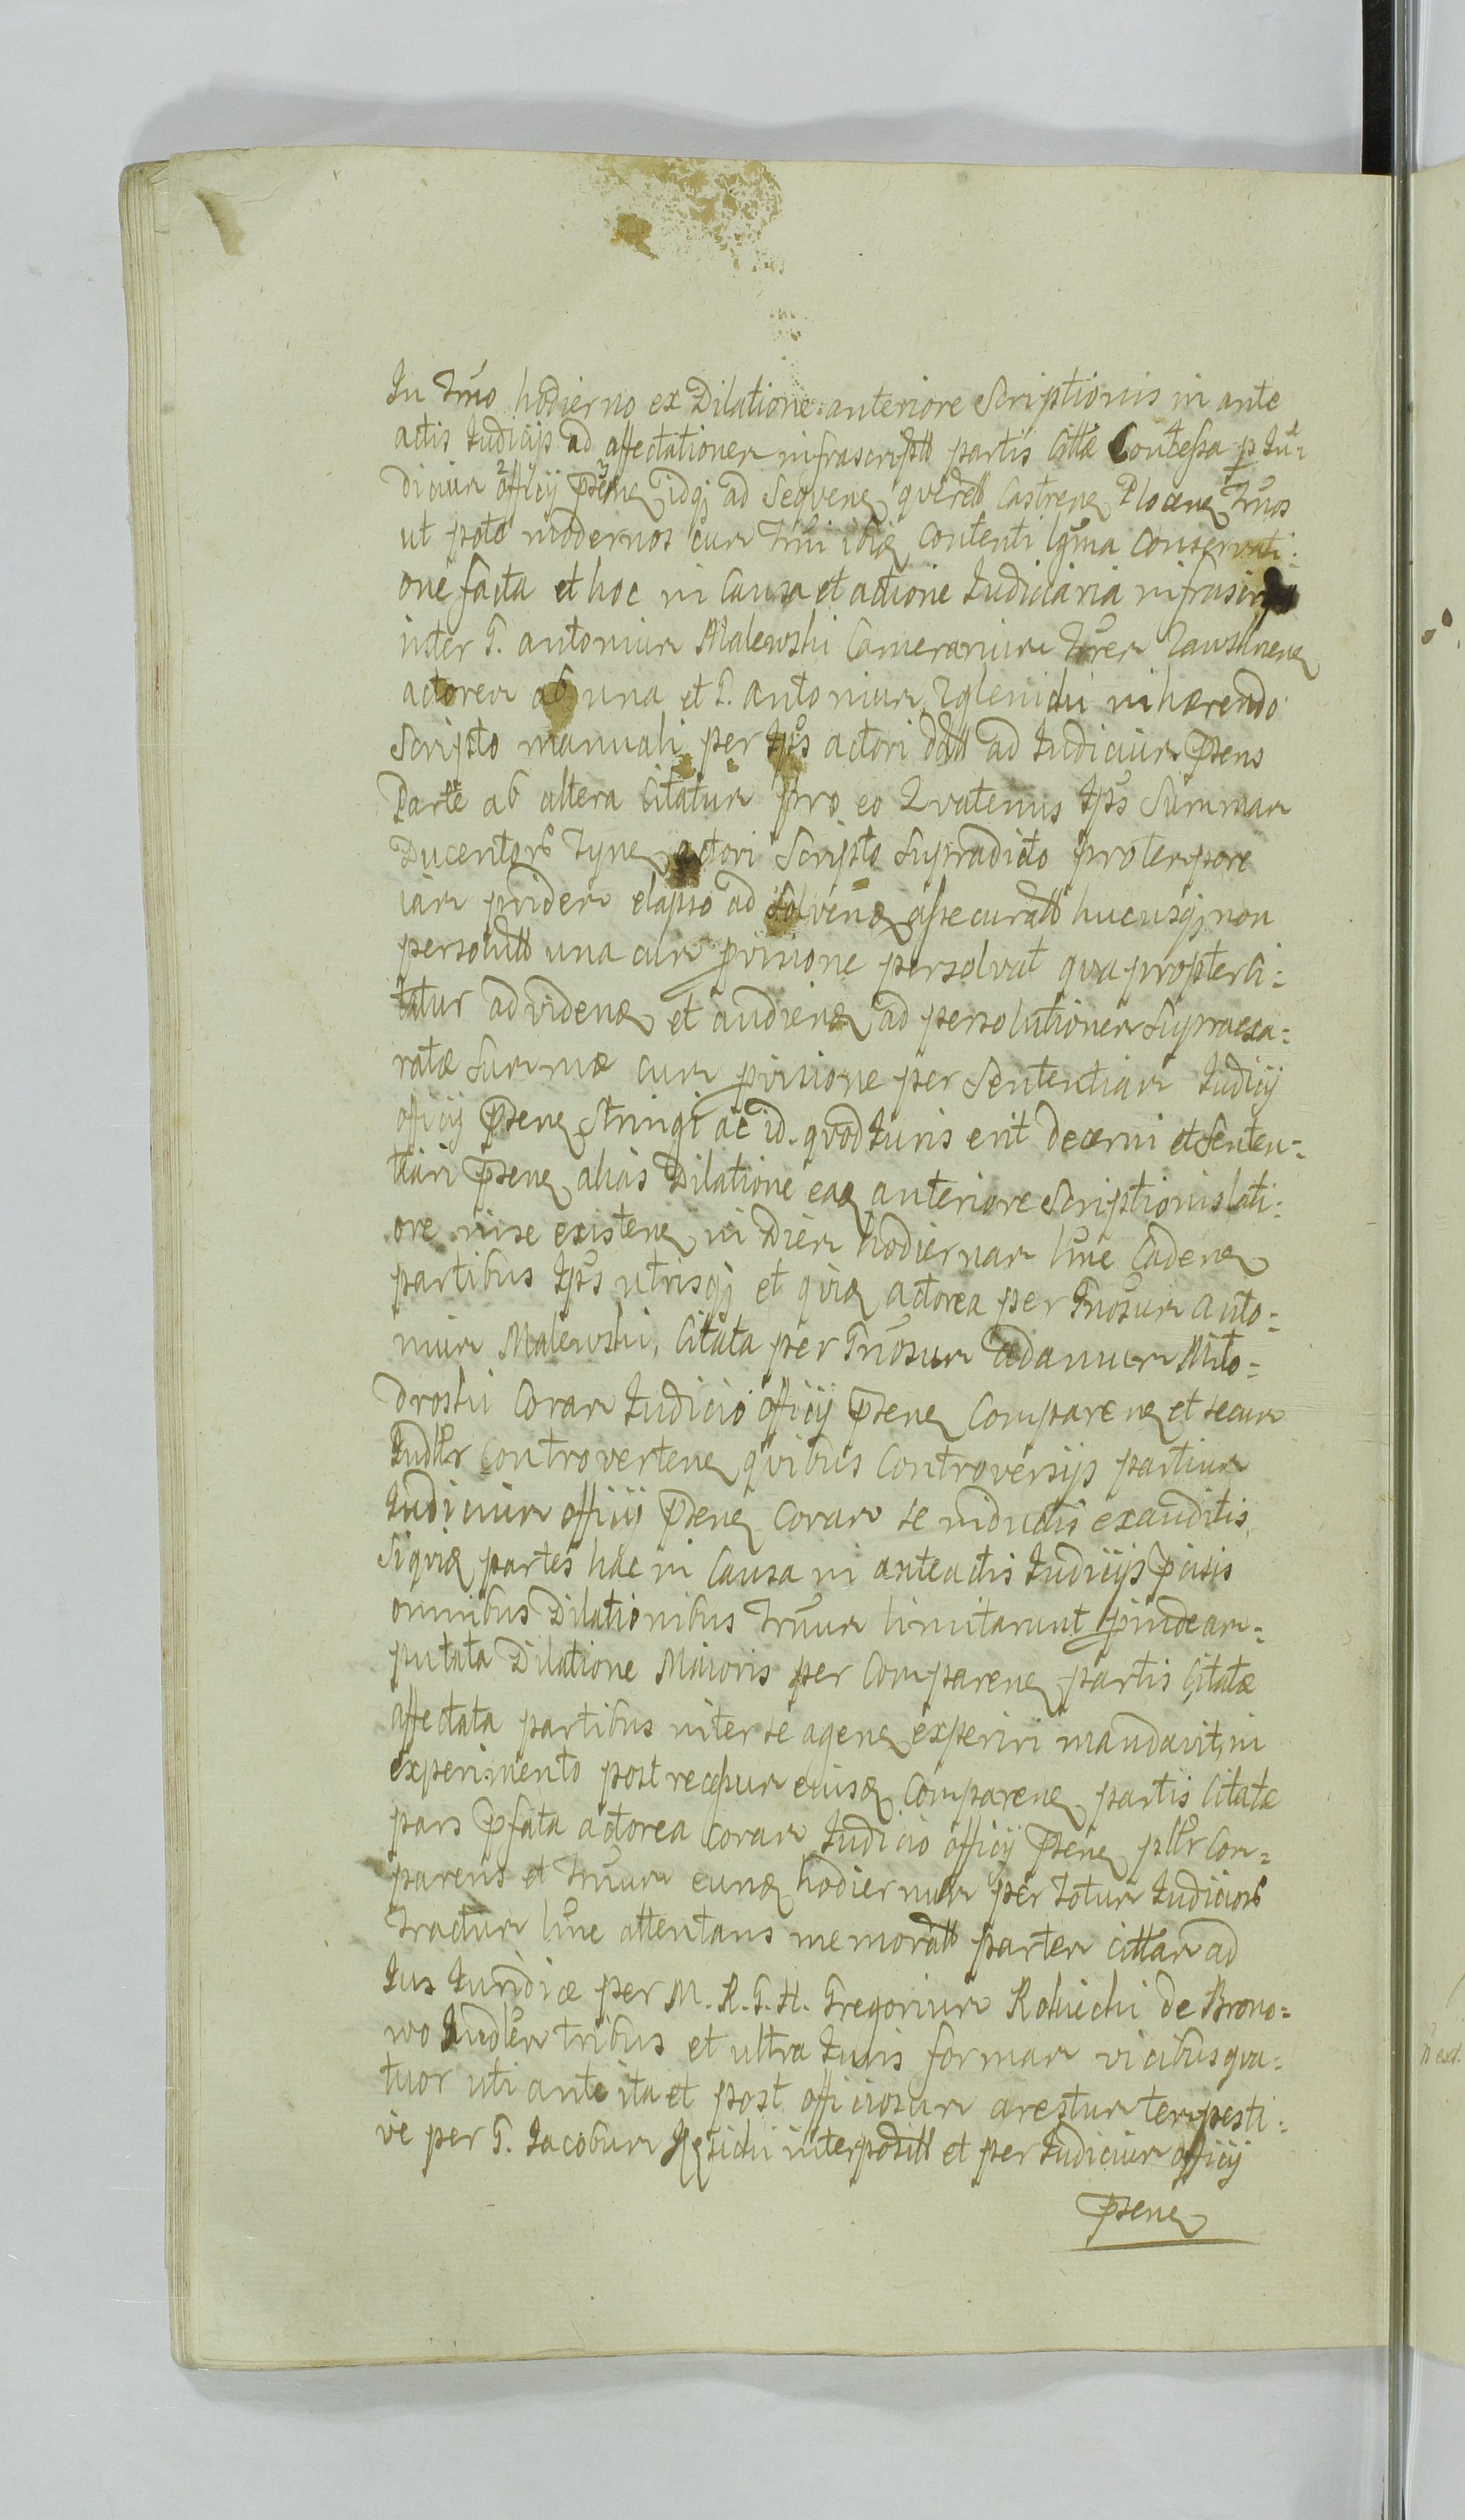 In Trno hodierno ex Dilatione anteriore Scriptionis in ante
actis Judicijs ad affectationem infrascriptt partis Cittæ Contessa p Ju-
dicium officij Psene idqj ad Sequene Castrene Plocene Trnos
ut poto modernos cum Trni Contenti lgma Conservati:
one facta et hoc in Causa et actione Judiciaria
inter G. antonium Malewski Camerarium Trrer Zawskrene
actorem ab una et G. antonium Zglenicki inhærendo
Scripto manuali per Jps actori datt ad Judicium Psens
Parte ab altera Citatum pro eo Qvatenus Jps Summam
Ducentorb Tyne actori Scripto Supradicto pro tempore
iam pridem elapso ad Solvenq assecuratt hucusqj non
persolutt una cum pvisione persolvat qva propter ci:
tatur ad videnq et audienq ad persolutionem Supraexa:
ratæ Summæ cum pvisione per Sententiam Judicij
officij Psene Stringi ac id. quod Juris erit decerni et Senten:
tiari Psene alias Dilatione eaq anteriore Scriptionis lati:
ore in se existene in diem hodiernam lme Cadene
partibus Jps utrisqj et quiq actorea per Gnosum anto:
nium Malewski, Citata per Gnosum adamum Mito:
droski Coram Judicio officij Psene Comparene et secum
Judlr Controvertene quibus Controversijs partium
Judicium officij Psene Coram se inductis exauditis
Siquiq partes hac in Causa in anteactis Judicijs pcisis
omnibus Dilationibus Trnum limitarunt pinde am:
putata Dilatione Maioris per Comparene partis Citatæ
affectata partibus inter se agene experiri mandavit, in
experimento post recessum eiusq Comparene partis Citatæ
pars pfata actorea Coram Judicio officij Psene pllr Com:
parens et Trnum eunq hodiernum per totum Judiciorb
Tractum lme attentans memoratt partem cittam ad
Jus Juridice per M. R. G. H. Gregorium Rokicki de Brono:
wo Judlem tribus et ultra Juris formam vicibus qva:
tuor uti ante ita et post officiosum arestum tempesti:
ve per G. Jacobum interpositt et per Judicium officij
Psene